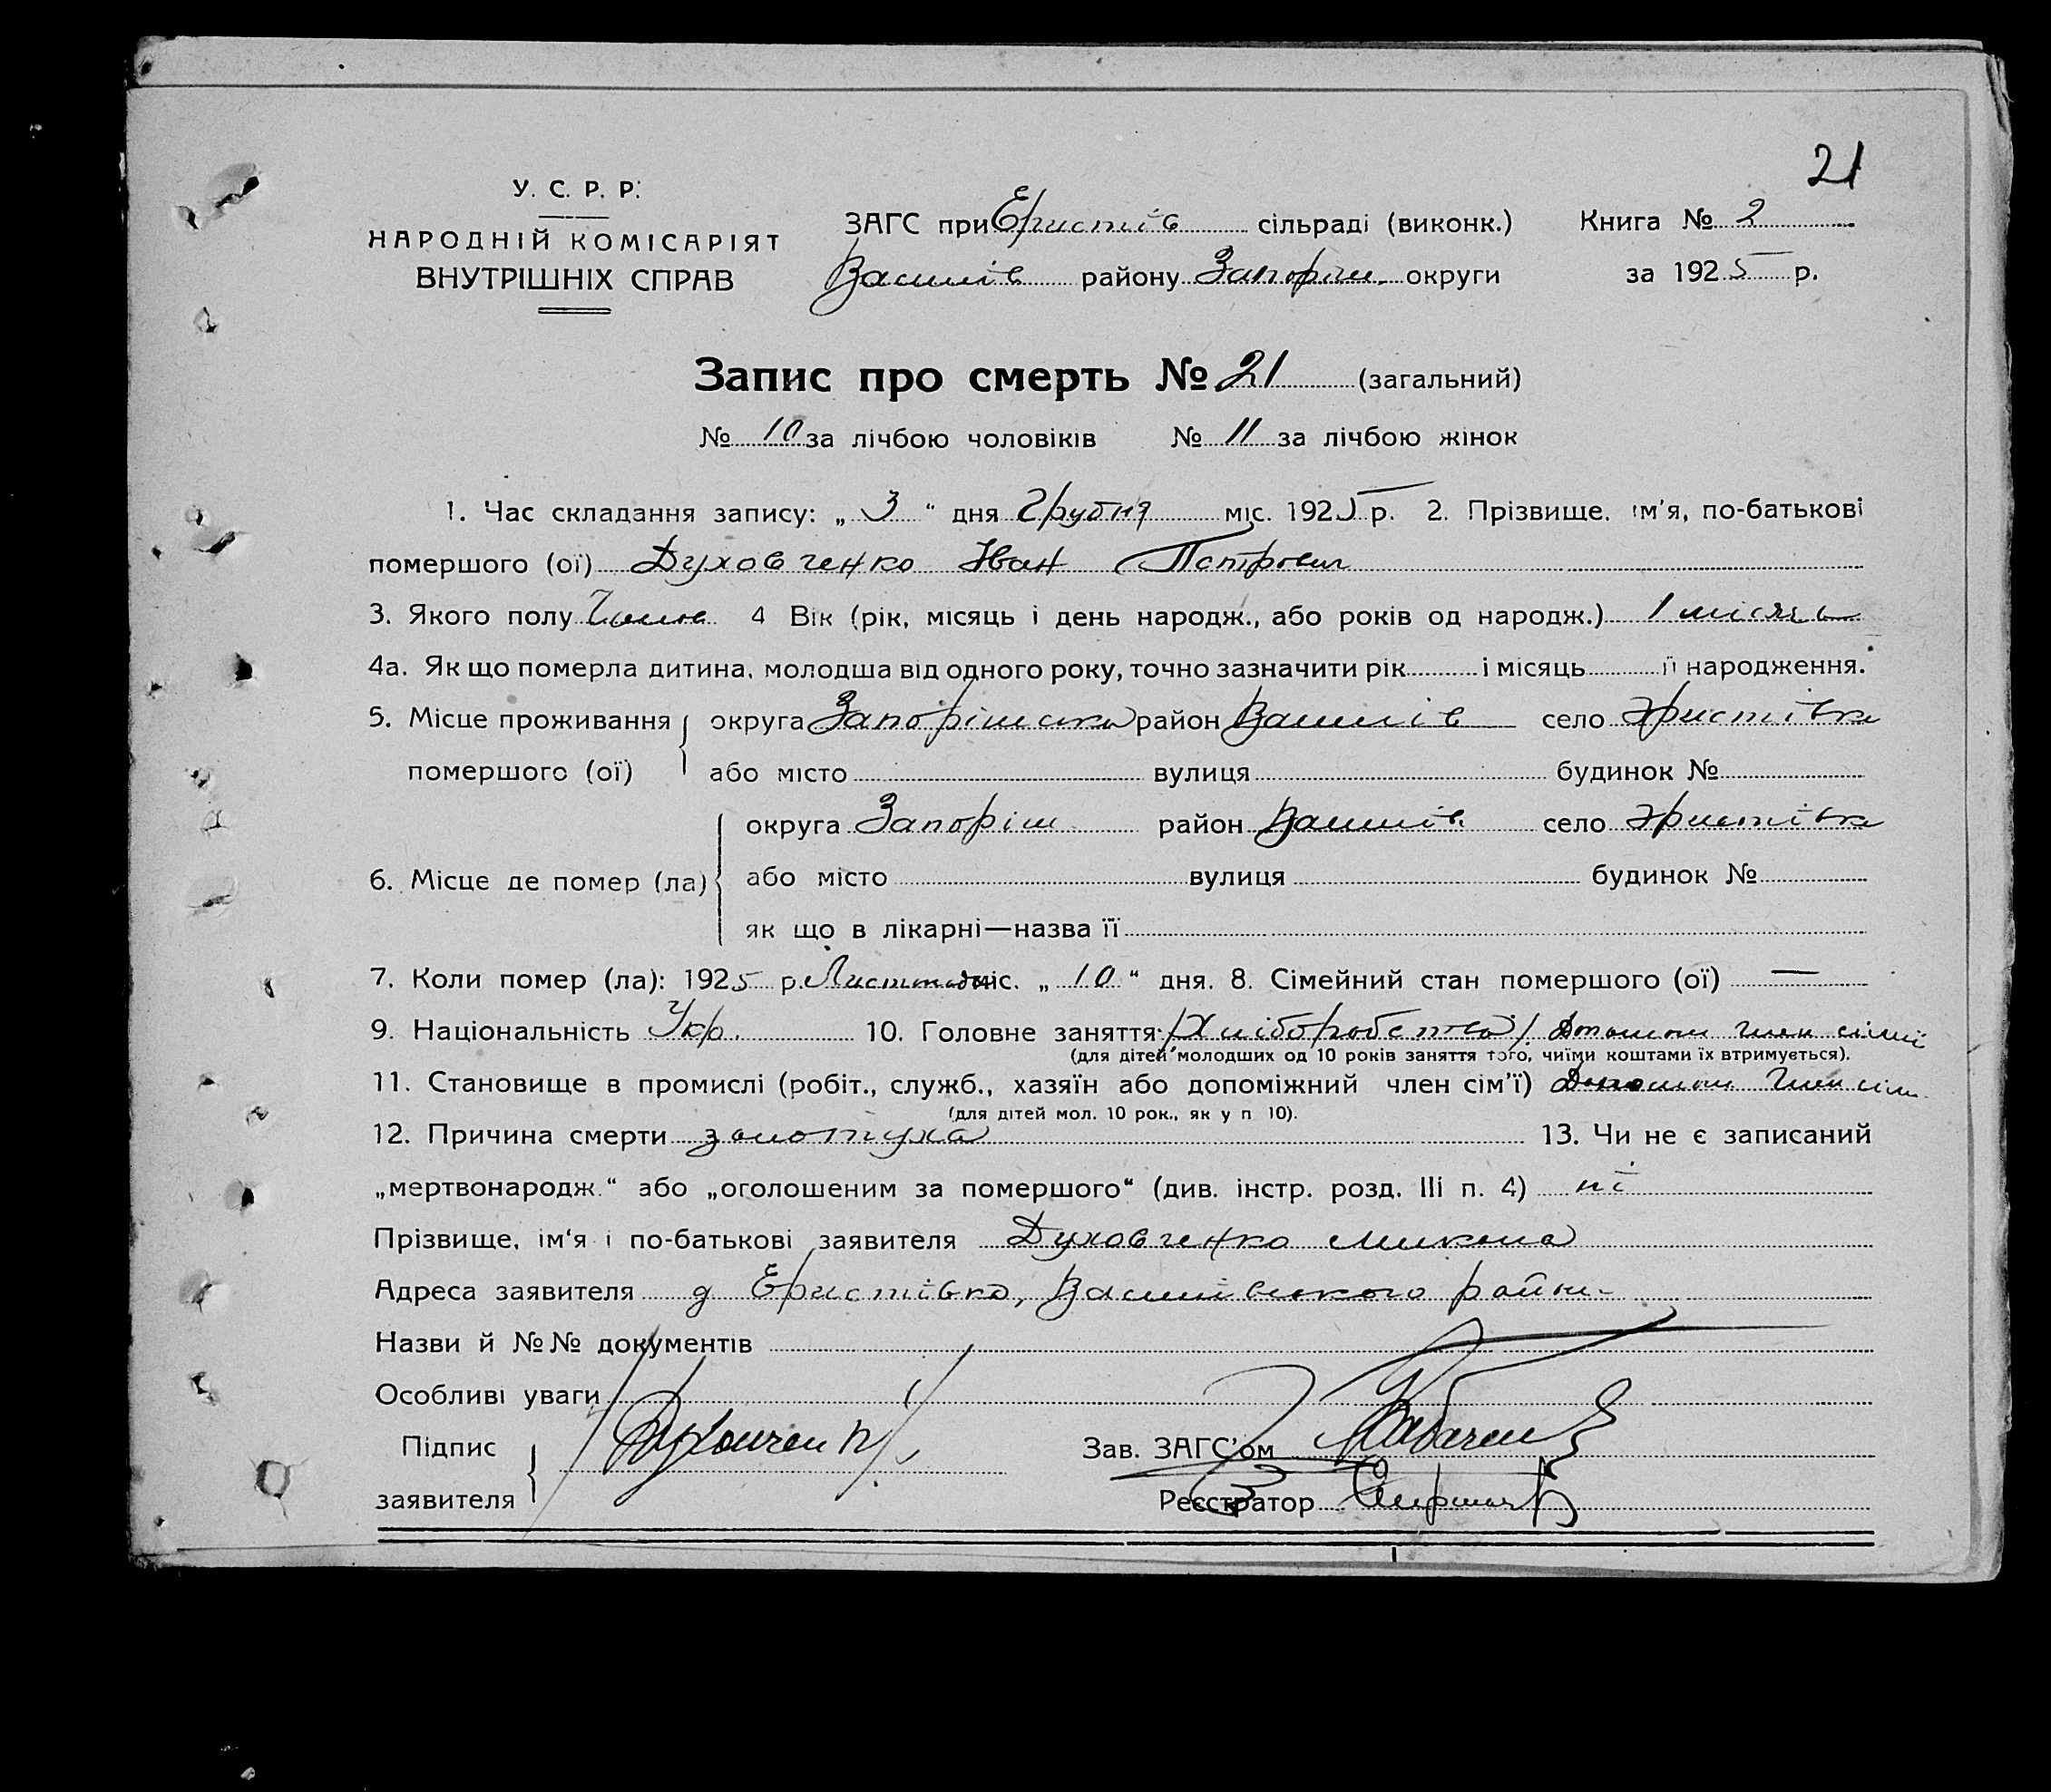 21
У. С. Р. Р.
НАРОДНІЙ КОМІСАРІЯТ
ВНУТРІШНІХ СПРАВ
ЗАГС при Еристів сільраді (виконк.) Книга № 2
Василів району Запоріж. округи за 1925 р.
Запис про смерть № 21 (загальний)
№ 10 за лічбою чоловіків № 11 за лічбою жінок
1. Час складання запису: „ 3 “ дня Грудня міс. 1925 р. 2. Прізвище, ім'я, по-батькові
помершого (ої) Духовченко Іван Петрович
3. Якого полу 4 Вік (рік, місяць і день народж., або років од народж.) 1 місяць
4а. Як що померла дитина, молодша від одного року, точно зазначити рік і місяць її народження.
5. Місце проживання округа Запоріжська район Василів село Эристівка
помершого (ої) або місто вулиця будинок №
6. Місце де помер (ла) округа Запоріж район Василів село Эристівка
або місто вулиця будинок №
як що в лікарні—назва її
7. Коли помер (ла): 1925 р. Листопад міс. „ 10 “ дня. 8. Сімейний стан помершого (ої) —
9. Національність Укр. 10. Головне заняття: /Хліборобство/ Допомож член сімї
(для дітей молодших од 10 років заняття того, чиїми коштами їх втримується).
11. Становище в промислі (робіт., служб., хазяїн або допоміжний член сім'ї) Допомож член сім
(для дітей мол. 10 рок., як у п 10).
12. Причина смерти золотуха 13. Чи не є записаний
„мертвонародж.“ або „оголошеним за помершого“ (див. інстр. розд. III п. 4) ні
Прізвище, ім'я і по-батькові заявителя Духовченко Микола
Адреса заявителя д Еристівка, Василівського райну
Назви й №№ документів
Особливі уваги
Підпис
заявителя
Зав. ЗАГС'ом
Реєстратор